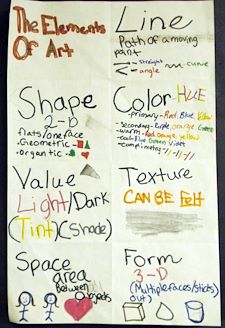 The Elements
Of Art
Line
Path of a moving
point
straight
angle
curve
Shape
2-D
flats/oneface
-Geometric-
-Organtic-
Color HUE
-primary-Red, Blue, Yellow
-Secondary-Purple, orange, Green
-warm-Red, Orange, yellow
-cool-Blue, Green, Violet
Value
Light/Dark
(Tint)(Shade)
Texture
CAN BE Felt
Space
area
Between
Form
3-D
(Multiplefaces/Sticks
out)